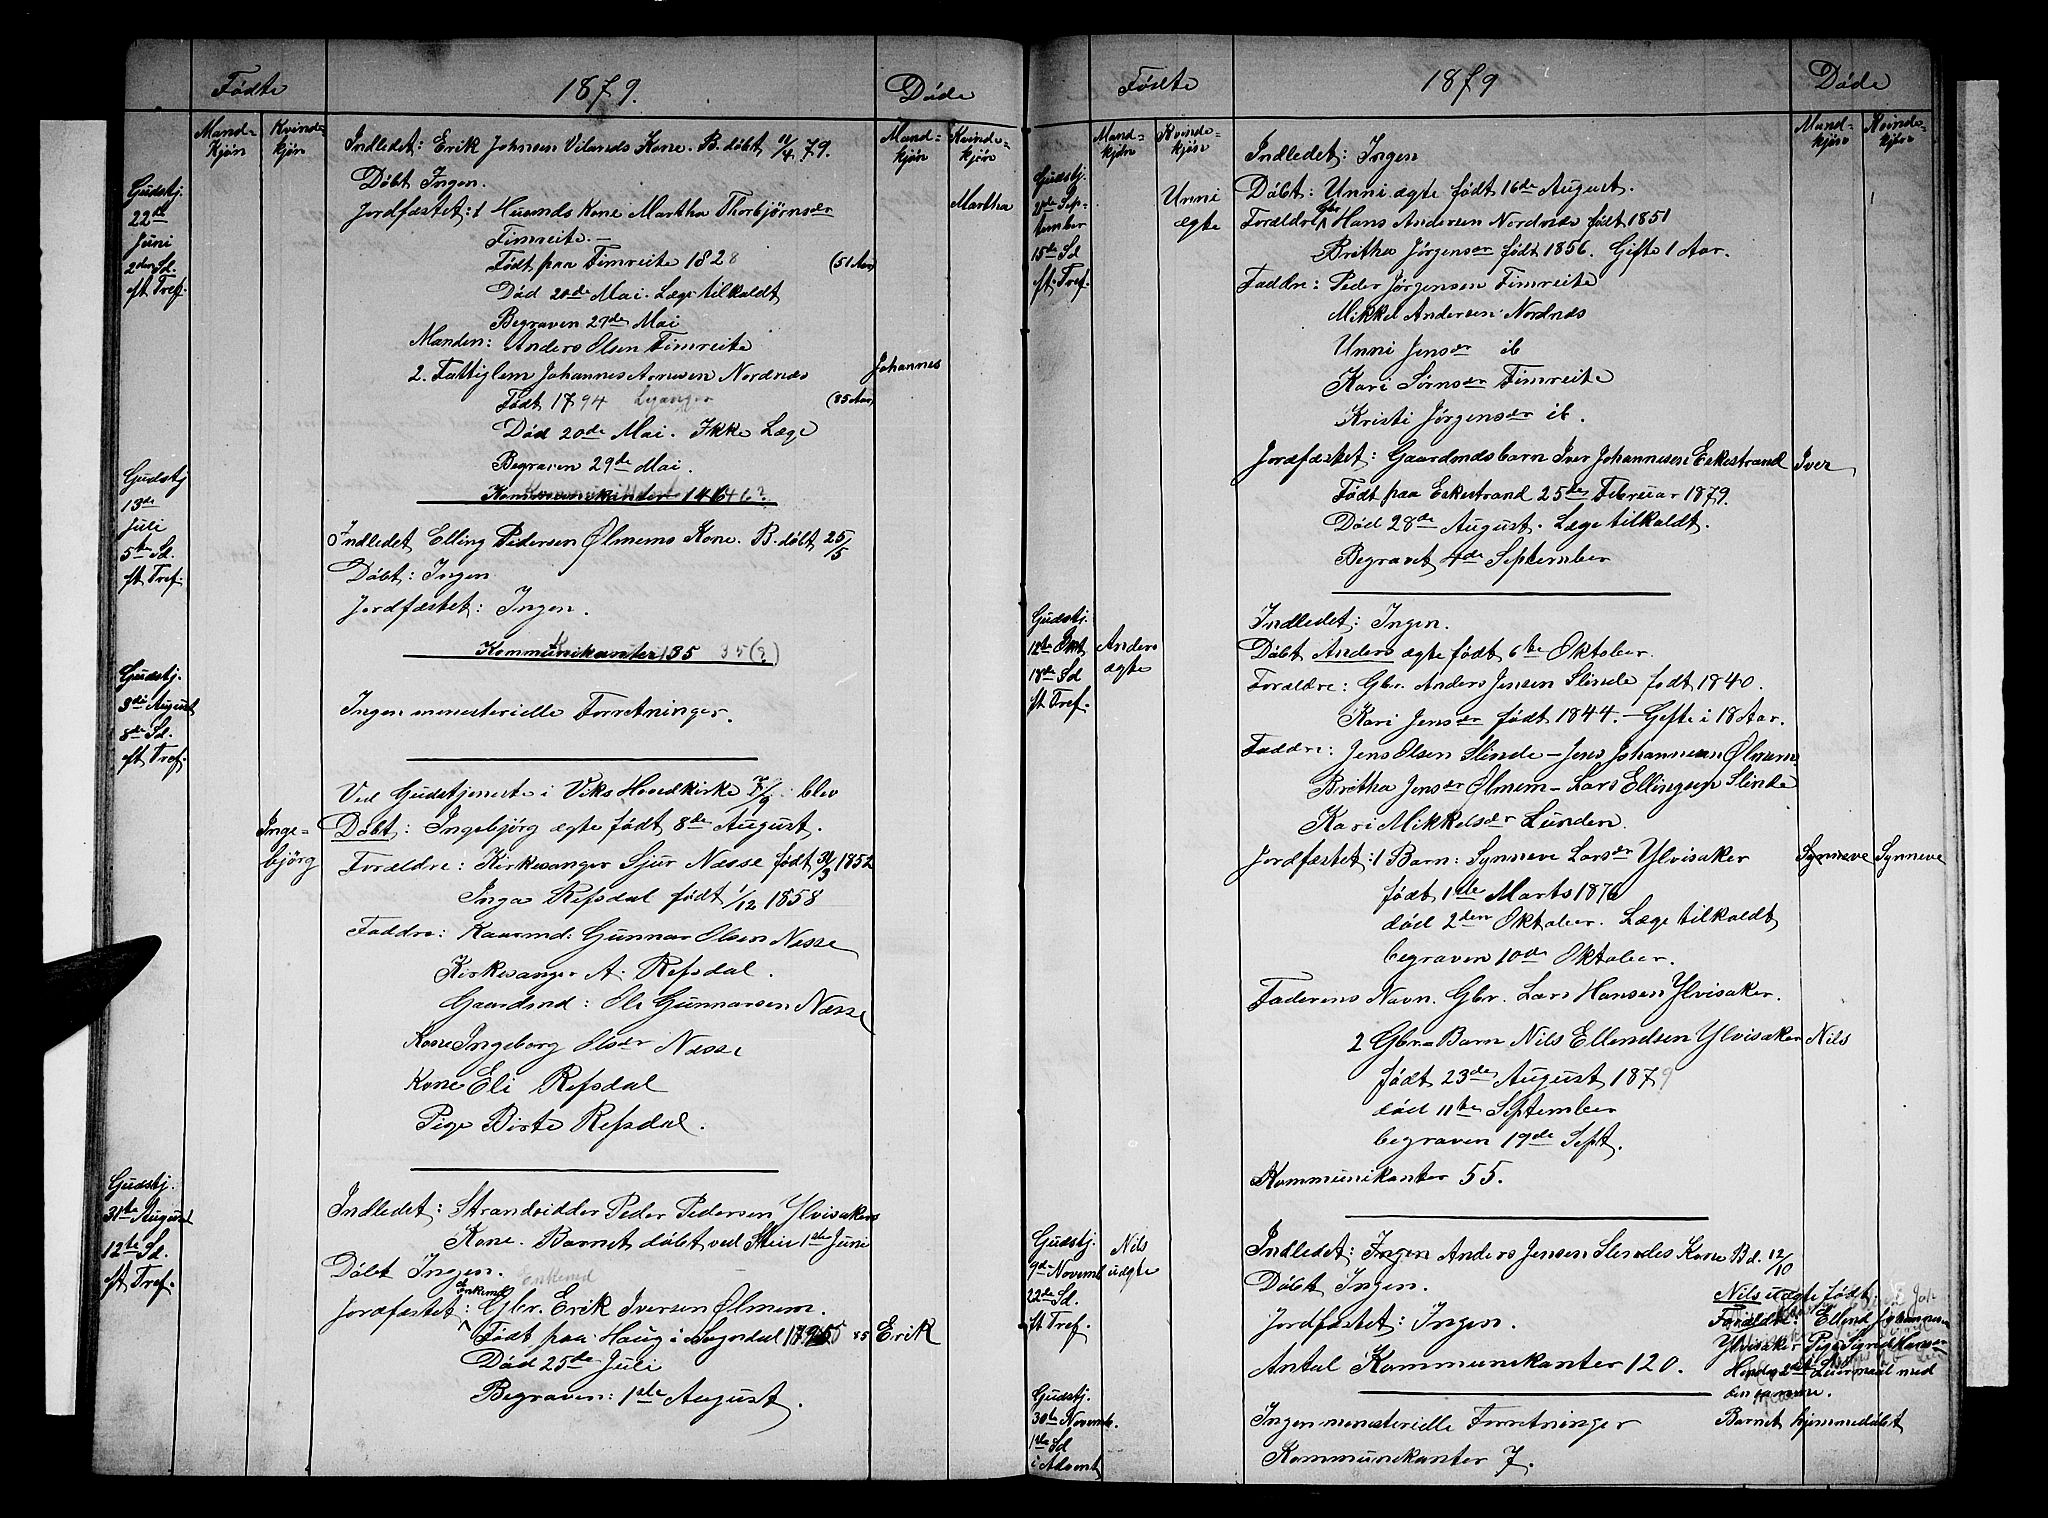 Fødte
1879.
Døde
Mand-
kjøn
Kvinde-
kjøn
Mand-
kjøn
Kvinde-
kjøn
Gudstj.
22de
Juni
2den Sd.
eft Tref.
Indledet: Erik Johnsen Vilands Kone. B. døbt 11/4 79.
Døbt Ingen.
Jordfæstet: 1 Husmds Kone Martha Thorbjørnsdr
Martha
Fimreite. –
Født paa Fimreite 1828
(51 Aar)
Død 20de Mai. Læge tilkaldt
Begraven 29de Mai
Manden: Anders Olsen Fimreite
2. Fattiglem Johannes Arnesen Nordnæs
Johannes
Født 1794 Leganger
(85 Aar)
Død 20de Mai. Ikke Læge
Begraven 29de Mai.
146 46?
Gudstj
13de
Juli
5te Sd.
eft Tref.
Indledet Elling Pedersen Ølmems Kone. B. døbt 25/5
Døbt: Ingen
Jordfæstet: Ingen.
Kommunikanter 135 35(?)
Gudstj.
3die August
8de Sd.
eft Tref.
Ingen menesterielle Forretninger.
Ved Gudstjeneste i Viks Hovedkirke 7/9 blev
Inge-
bjørg
Døbt: Ingebjørg ægte født 8de August.
Forældre: Kirkesanger Sjur Næsse født 31/3 1852
Inga Refsdal født 1/12 1858
Faddre: Kaarmd: Gunnar Olsen Næsse
Kirkesanger A. Refsdal.
Gaardmd: Ole Gunnarsen Næsse
Kone Ingeborg Olsdr Næsse
Kone Eli Refsdal
Pige Birte Refsdal.
Gudstj.
31te August
12te Sd.
eft Tref.
Indledet: Strandsidder Peder Pedersen Ylvisakers
Kone. Barnet døbt ved Stein 1ste Juni
Døbt Ingen.
Enkemd
Enkemd
Jordfæstet: Gbr. Erik Iversen Ølmem.
Født paa Haug i Sogndal
85
Erik
Død 25de Juli
Begraven: 1ste August.
Fødte
1879
Døde
Mand-
kjøn
Kvinde-
kjøn
Mand-
kjøn
Kvinde-
kjøn
Gudstj.
Sep-
tember
15de Sd
eft. Tref.
Unni
ægte
Indledet: Ingen
Døbt: Unni ægte født 16de August.
Forældre Gbr Hans Andersen Nordnæs født 1851
Britha Jørgensdr født 1856. Gifte 1 Aar.
Faddre: Peder Jørgensen Fimreite
Mikkel Andersen Nordnæs
Unni Jensdr ib
Kari Sørnsdr Fimreite
Kristi Jørgensdr ib.
Jordfæstet: Gaardmdsbarn Iver Johannesen Eskestrand
Iver
Født paa Eskestrand 25de Februar 1879.
Død 28de August. Læge tilkaldt.
Begravet 4de September
Gudstj.
12te Okt
18de Sd
eft Tref.
Anders
ægte
Indledet: Ingen.
Døbt Anders ægte født 6te Oktober.
Forældre: Gbr. Anders Jensen Slinde født 1840.
Kari Jensdr født 1844. – Gifte i 18 Aar.
Faddre: Jens Olsen Slinde – Jens Johannesen Ølmem
Britha Jensdr Ølmem – Lars Ellingsen Slinde
Kari Mikkelsdr Lunden.
Jordfæstet: 1 Barn: Synneve Larsdr Ylvisaker
Synneve
Synneve
født 1ste Marts 1876
død 2den Oktober. Læge tilkaldt
begraven 10de Oktober.
Faderens Navn. Gbr. Lars Hansen Ylvisaker.
2 Gbr Barn Nils Ellendsen Ylvisaker
Nils
født 23de August 1879
død 11te September
begraven 19de Sept.
Kommunikanter 55.
Gudstj.
9de Novemb
22de Sd.
eft Tref.
Nils
uægte
Indledet: Ingen Anders Jensen Slindes Kone B d. 12/10
Døbt Ingen.
Jordfæstet: Ingen.
Antal Kommunikanter 120.
Nils uægte født
Forældre: Ellend Johannesen
Ylvisaker, Pige Signe Hans-
Hendes 2det Leiermaal med
den samme.
Barnet hjemmedøbt
Gudstj.
30te Novemb.
1ste Sd
i Advent
Ingen menesterielle Forretninger
Kommunikanter 7.